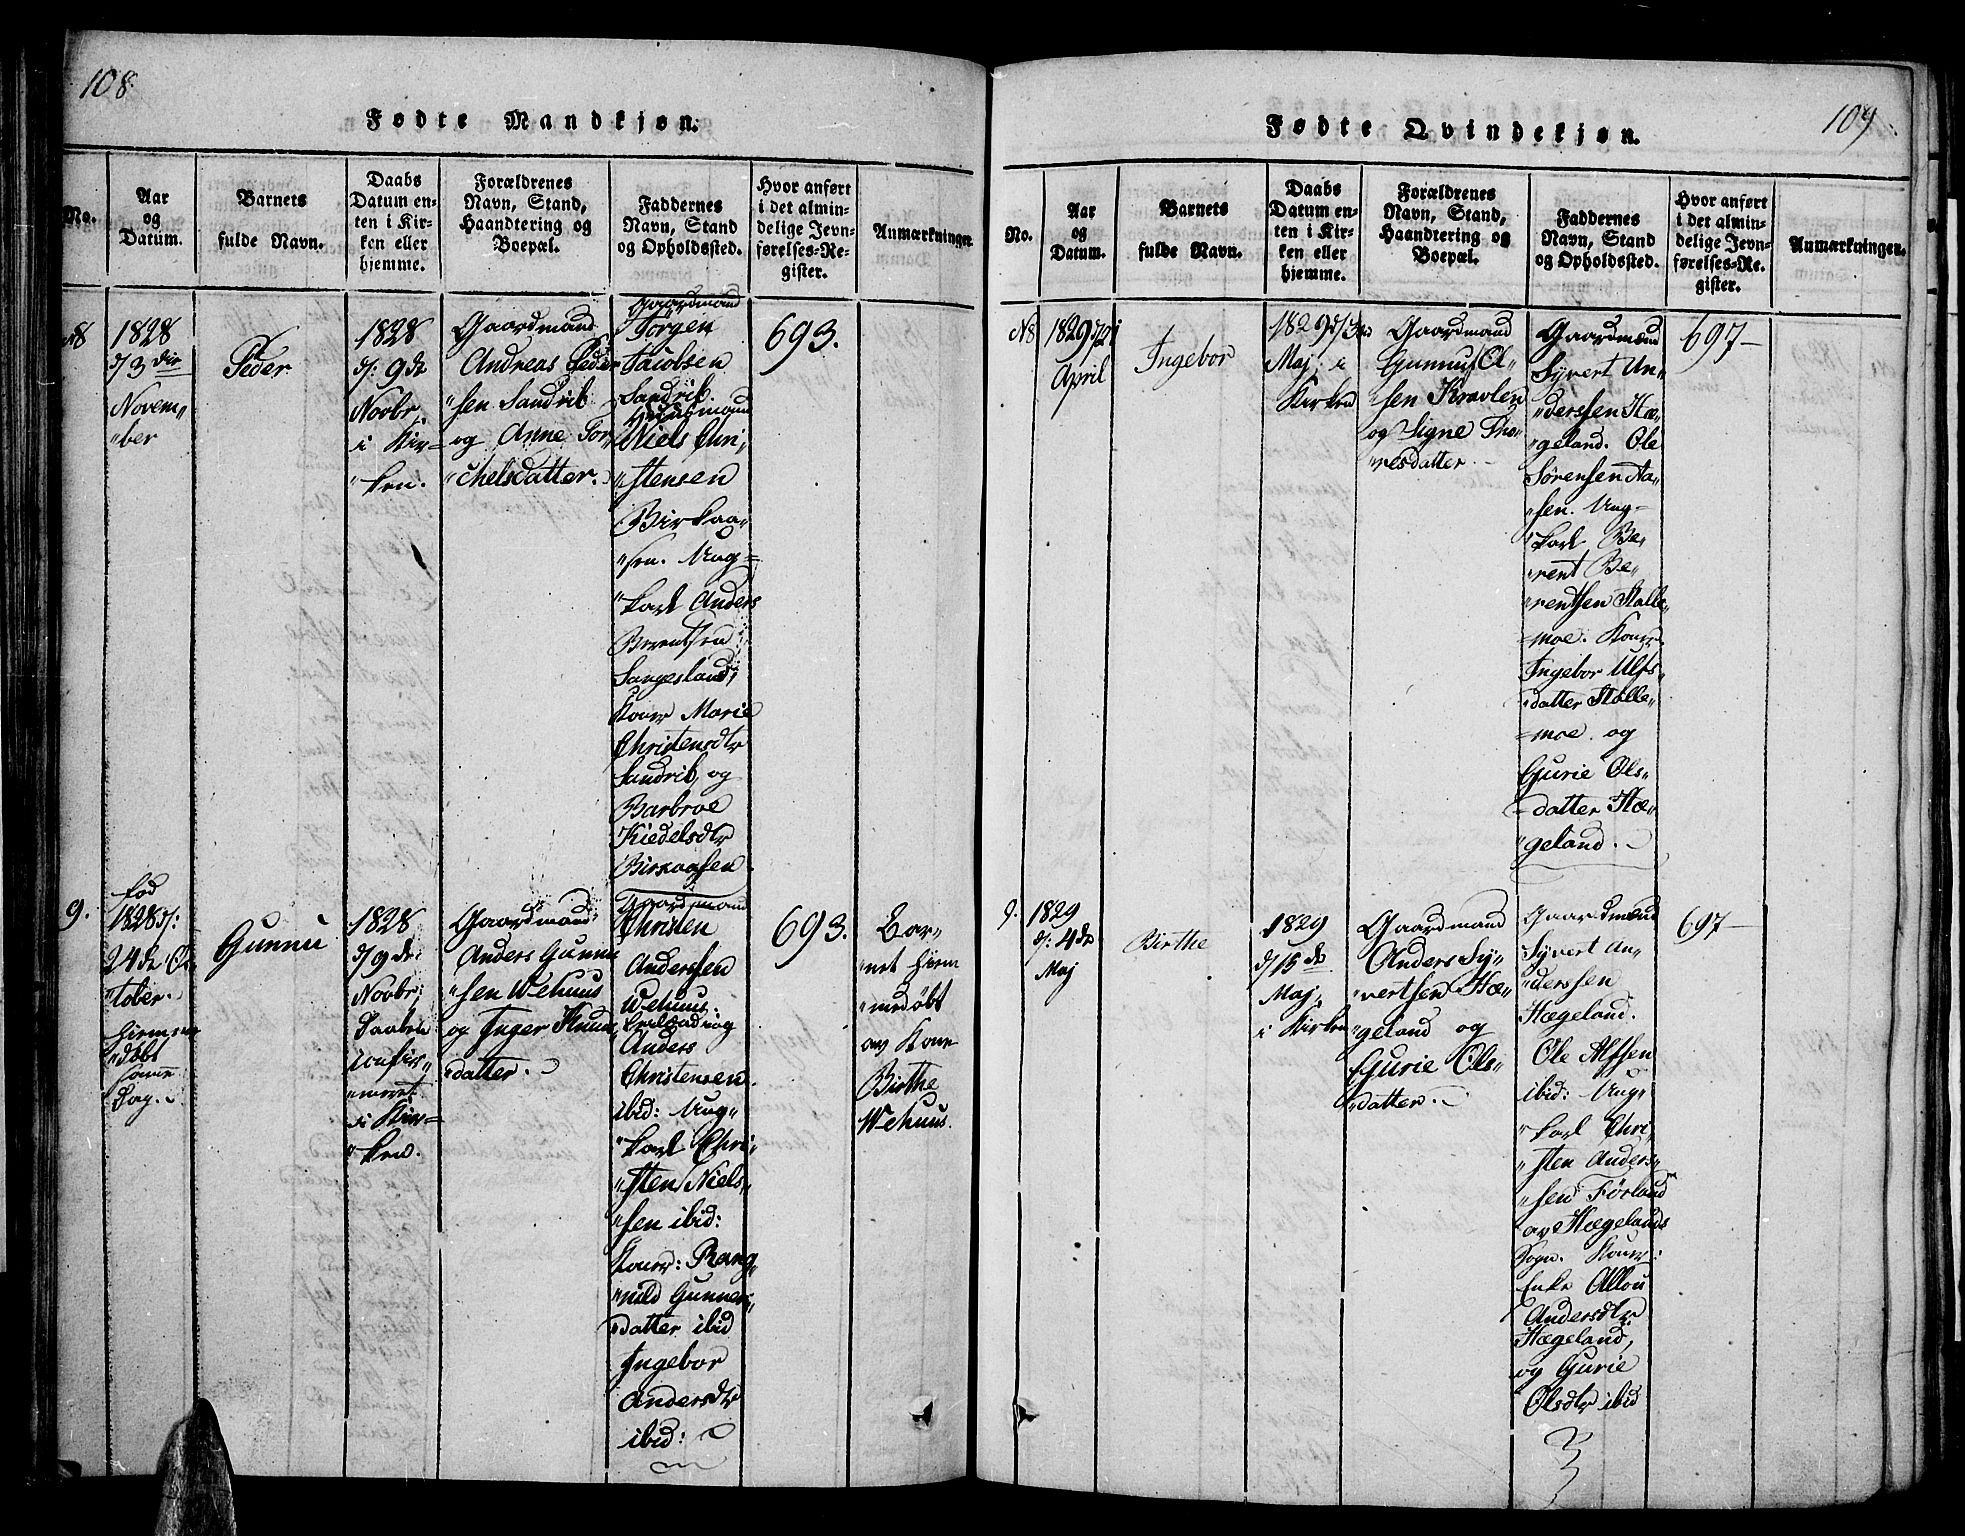 108.
Fødte Mandkjøn.
No.
Aar
og
Datum.
Barnets
fulde Navn.
Daabs
Datum en-
ten i Kir-
ken eller
hjemme.
Forældrenes
Navn, Stand,
Haandtering og
Boepæl.
Faddernes
Navn, Stand
og Opholdssted.
Hvor anført
i det almin-
delige Jevn-
førelses-Re-
gister.
Anmærkninger.
8
1828
d/3die
Novem„
„ber
Peder
1828
d: 9de
Novbr.
i Kir-
„ken.
Gaardmand
Andreas Peder
„sen Sandrik
og Anne Tor„
„chelsdatter.
Gaardmand
Torgen
Jacobsen
Sandrik.
Huusmand
Niels Chri„
„stensen
Birkaa„
„sen. Ung-
„karl Anders
Berentsen
Langesland,
Koner Marie
Christensdtr
Sandrik, og
Barbroe
Kiedelsdtr
Birkaasen
693.
9.
fød
1828 d:
24de Oc„
„tober.
hiemme
„døbt
samme
Dag.
Gunnu
1828
d/9de
Novbr.
Daaben
confir„
„meret
i Kir-
„ken.
Gaardmand
Anders Gunnu
„sen Wehuus
og Inger Knuds
„datter.
Gaardmand
Christen
Anderssen
Wehuus.
og
Anders
Christensen
ibid: Ung„
„karl Chri„
„sten Niels„
„sen ibid:
Koner: Rang„
„nild Gunner„
„datter ibid
Ingebor
Andersdtr
ibid:
693.
Bar„
„net hiem
„medøbt
av Kone
Birthe
Wehuus.
109.
Fødte Qvindekjøn.
No.
Aar
og
Datum.
Barnets
fulde Navn.
Daabs
Datum en-
ten i Kir-
ken eller
hjemme.
Forældrenes
Navn, Stand,
Haandtering og
Boepæl.
Faddernes
Navn, Stand
og Opholdssted.
Hvor anført
i det almin-
delige Jevn-
førelses-Re-
gister.
Anmærkninger.
N8
1829 d/21
April
Ingebor
1829 d/3de
Maj i
Kirken
Gaardmand
Gunnu Ol„
„sen Kravlen
og Signe Tho„
„resdatter.
Gaardmænd
Syvert An„
„derssen Hæ„
„geland. Ole
Sørensen Aa„
„sen. Ung-
„karl Be„
„rent Be„
„rentsen Stalle„
„moe. Koner
Ingebor Ulfs„
„datter Stalle„
„moe. og
Gurie Ols„
„datter Hæ„
„geland.
697
9.
1829
d: 4de
Maj
Birthe
1829
d/15de
Maj
i Kirken
Gaardmand
Anders Sy„
„vertsen Hæ„
„geland og
Gurie Ols„
„datter.
Gaardmænd
Syvert An„
„derssen
Hægeland.
Ole Alfsen
ibid: Ung„
„karl Chri„
„sten Anders„
„sen Førland
av Hægelands
Sogn. Koner:
Enke Allou
Andersdtr
Hægeland,
og Gurie
Olsdtr ibid
697